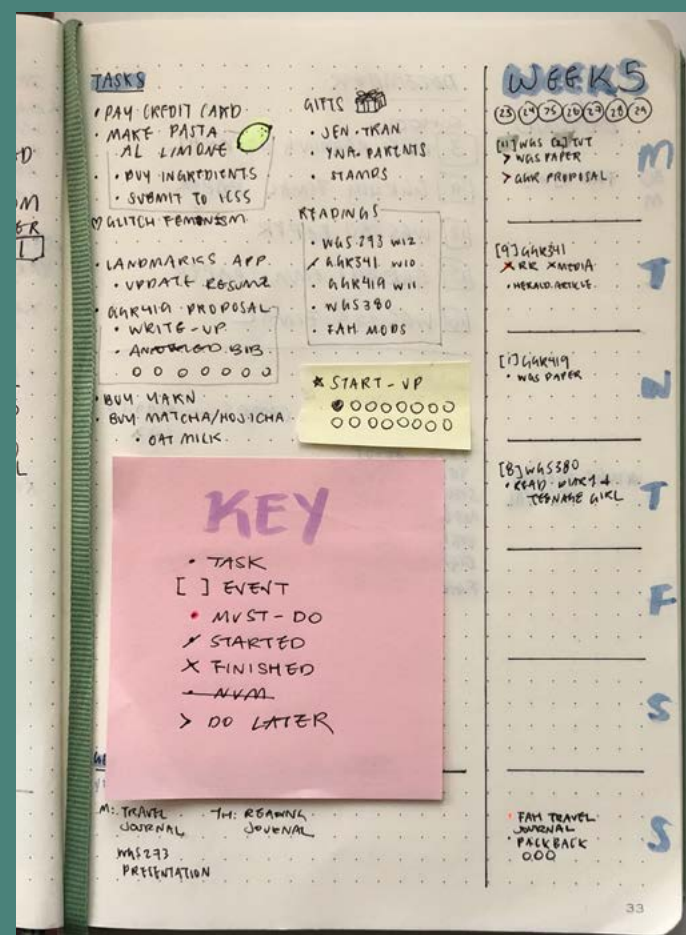 TASKS
• PAY CREDIT CARD
• MAKE PASTA
AL LIMONE
• BUY INGREDIENTS
• SUBMIT TO ICSS
♡ GLITCH FEMINISM
• LANDMARKS APP.
• UPDATE RESUME
• GGR419 PROPOSAL
• WRITE-UP
BIB
• BUY YARN
• BUY MATCHA/HOJICHA
• OAT MILK
GIFTS
• JEN • TRAN
• YNA • PARENTS
• STAMPS
READINGS
• WGS273 W12
/ GGR341 W10
• GGR419 W11
• WGS380
• FAH MODS
★ START-UP
KEY
• TASK
[ ] EVENT
• MUST-DO
/ STARTED
X FINISHED
• NVM
> DO LATER
M: TRAVEL
JOURNAL
TH: READING
JOURNAL
WGS273
PRESENTATION
WEEK 5
23 24 25 26 27 28 29
[11] WGS [2] TUT
> WGS PAPER
> GGR PROPOSAL
M
[9] GGR341
X RR X MEDIA
• HERALD ARTICLE
T
[1] GGR419
• WGS PAPER
W
[8] WGS380
• READ DIARY
TEENAGE GIRL
T
F
S
• FAH TRAVEL
JOURNAL
• PACKBACK
S
33